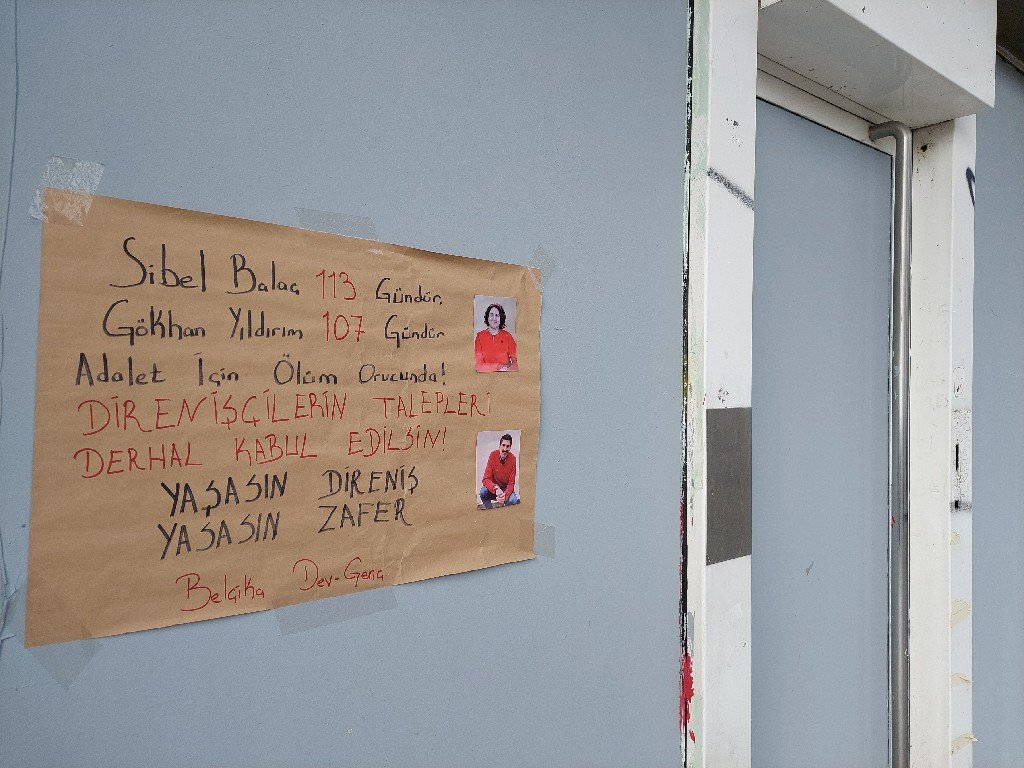 Sibel Balaç 113 Gündür,
Gökhan Yıldırım 107 Gündür
Adalet İçin Ölüm Orucunda!
DİRENİŞÇİLERİN TALEPLERİ
DERHAL KABUL EDİLSİN!
YAŞASIN DİRENİŞ
YAŞASIN ZAFER
Belçika Dev-Genç